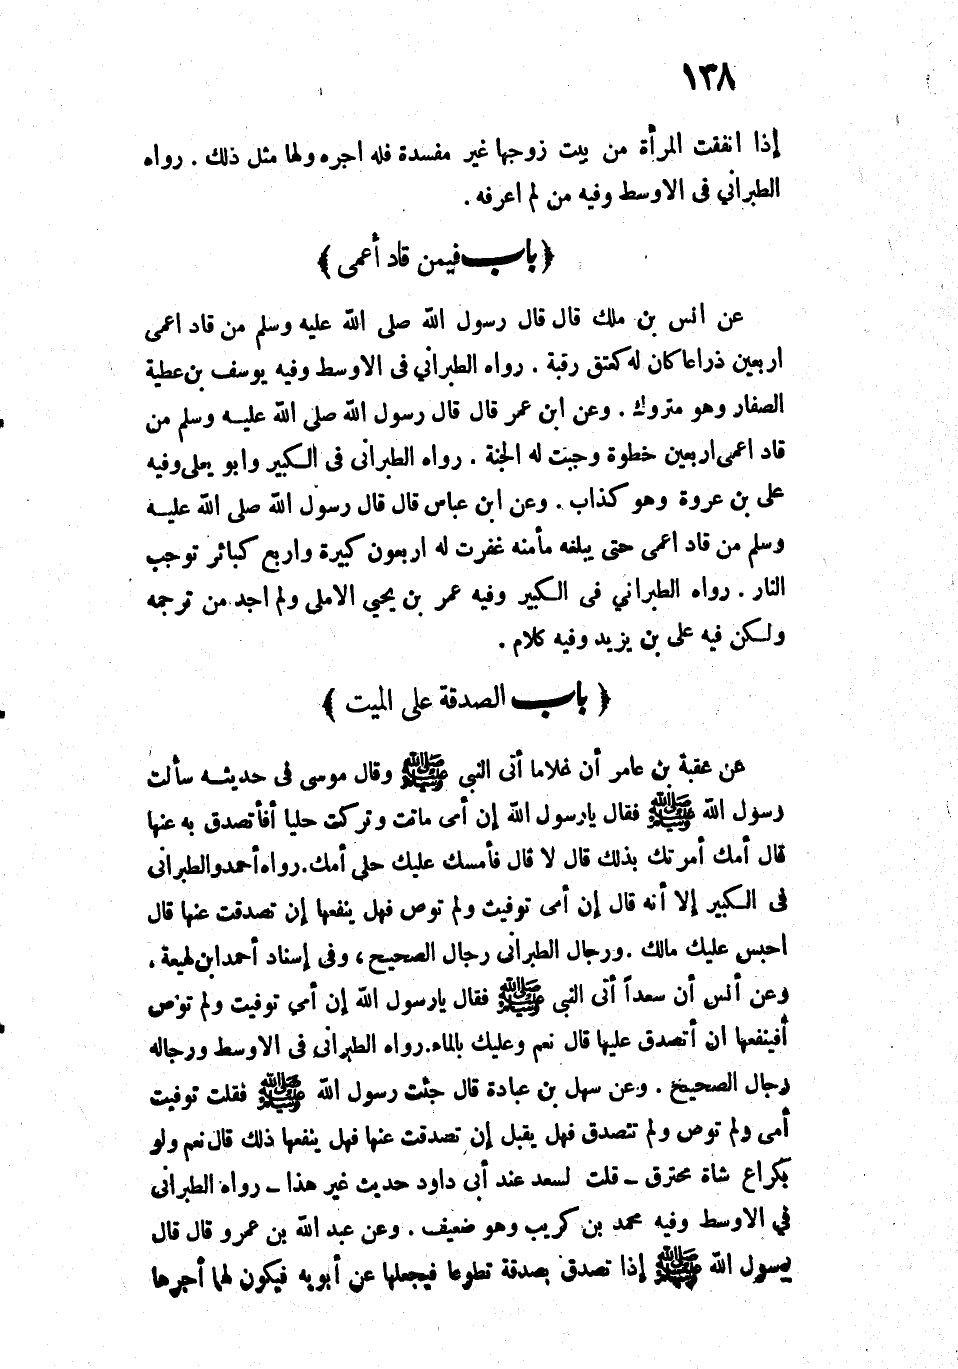 ١٣٨
إذا انفقت المرأة من بيت زوجها غير مفسدة فله اجره ولها مثل ذلك . رواه
الطبراني فى الاوسط وفيه من لم اعرفه .
﴿ باب فيمن قاد أعمى ﴾
عن انس بن ملك قال قال رسول الله صلى الله عليه وسلم من قاد اعمى
اربعين ذراعا كان له كعتق رقبة . رواه الطبراني فى الاوسط وفيه يوسف بن عطية
الصفار وهو متروك . وعن ابن عمر قال قال رسول الله صلى الله عليه وسلم من
قاد اعمى اربعين خطوة وجبت له الجنة . رواه الطبرانى فى الكبير وابو يعلى وفيه
على بن عروة وهو كذاب . وعن ابن عباس قال قال رسول الله صلى الله عليه
وسلم من قاد اعمى حتى يبلغه مأمنه غفرت له اربعون كبيرة واربع كبائر توجب
النار . رواه الطبراني فى الكبير وفيه عمر بن يحيى الاملى ولم اجد من ترجمه
ولكن فيه على بن يزيد وفيه كلام .
﴿ باب الصدقة على الميت ﴾
عن عقبة بن عامر أن غلاما أتى النبى ﷺ وقال موسى فى حديثه سألت
رسول الله ﷺ فقال يارسول الله إن أمى ماتت وتركت حليا أفأتصدق به عنها
قال أمك أمرتك بذلك قال لا قال فأمسك عليك حلي أمك.رواه أحمدوالطبرانى
فى الكبير إلا أنه قال إن أمى توفيت ولم توص فهل ينفعها إن تصدقت عنها قال
احبس عليك مالك .ورجال الطبرانى رجال الصحيح ، وفى إسناد أحمدابن لهيعة .
وعن أنس أن سعداً أتى النبى ﷺ فقال يارسول الله إن أمي توفيت ولم توص
أفينفعها ان أتصدق عليها قال نعم وعليك بالماء.رواه الطبرانى فى الاوسط ورجاله
رجال الصحيح . وعن سهل بن عبادة قال جئت رسول الله ﷺ فقلت توفيت
أمى ولم توص ولم تتصدق فهل يقبل إن تصدقت عنها فهل ينفعها ذلك قال نعم ولو
بكراع شاة محترق ــ قلت لسعد عند أبى داود حديث غير هذا ــ رواه الطبرانى
في الاوسط وفيه محمد بن كريب وهو ضعيف . وعن عبد الله بن عمرو قال قال
رسول الله ﷺ إذا تصدق بصدقة تطوعا فيجعلها عن أبويه فيكون لهما أجرها